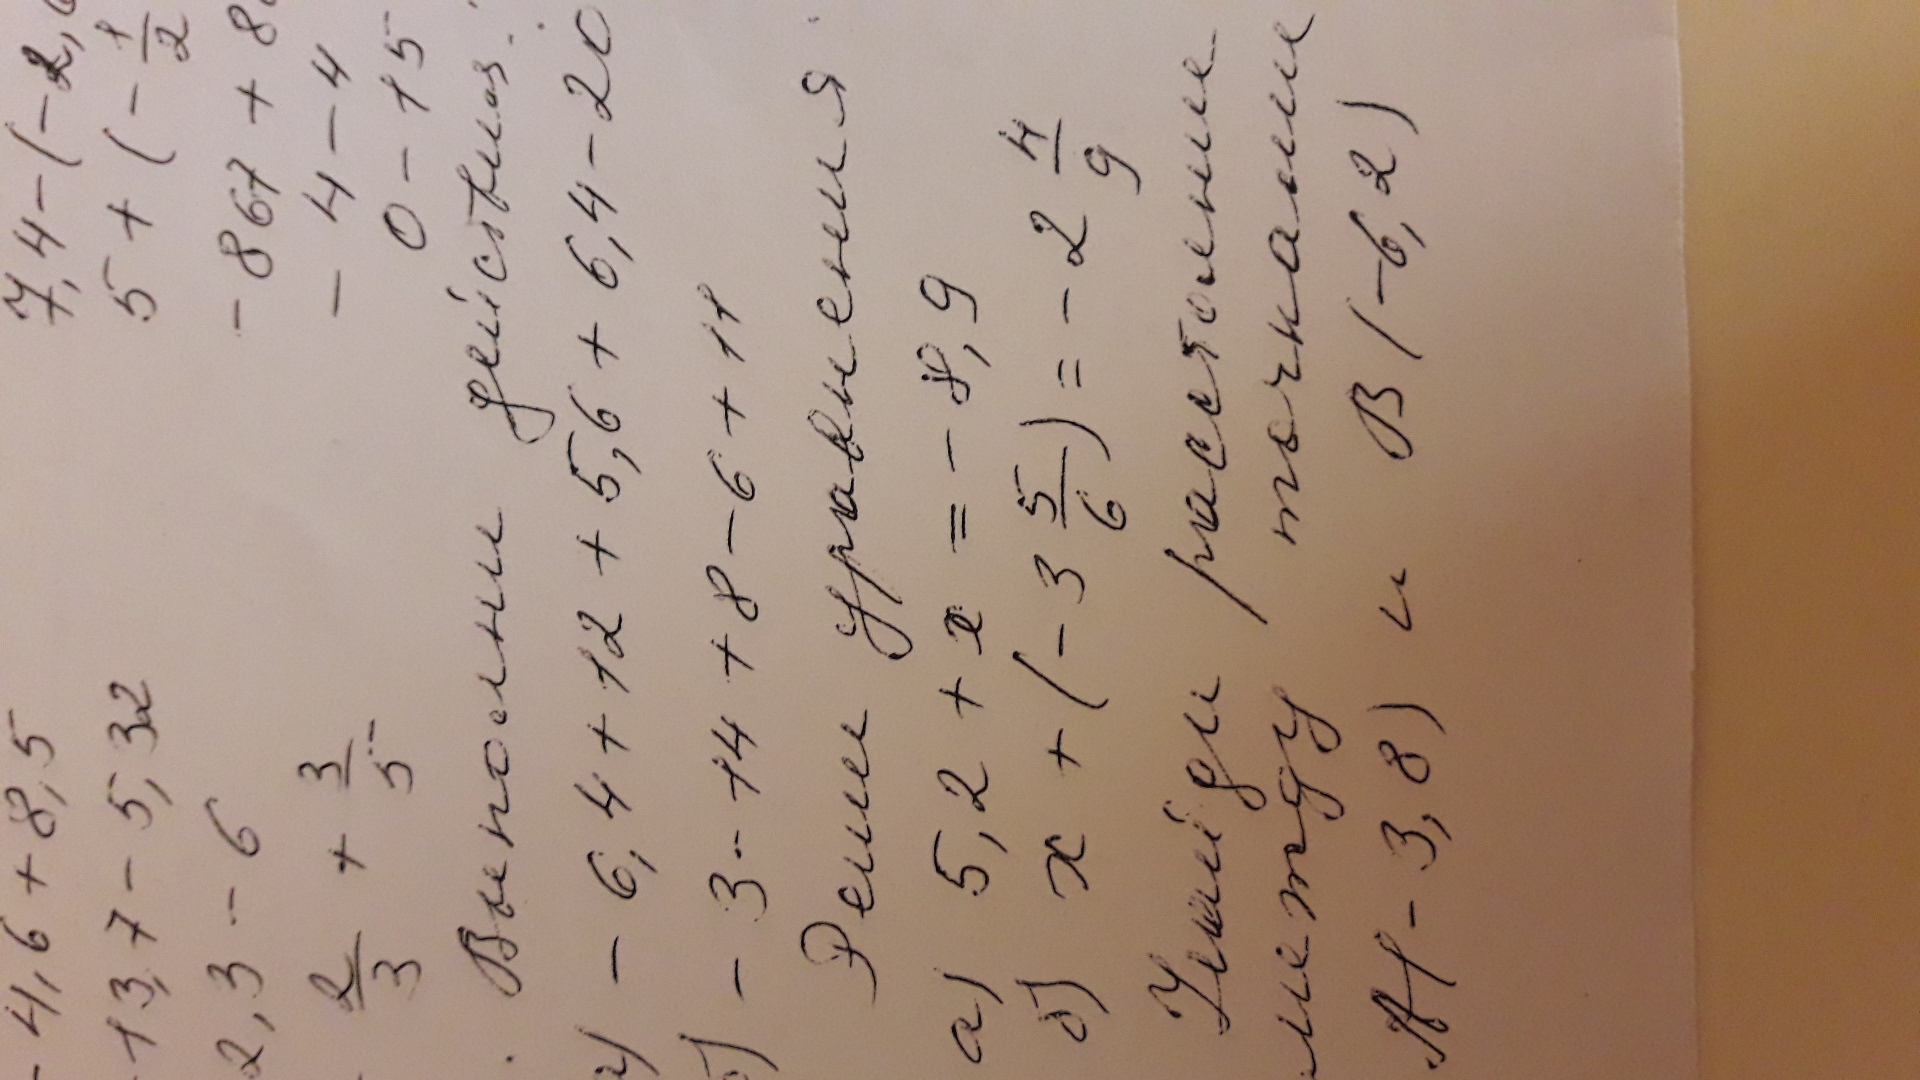 - 4,6 + 8,5 7,4 - (- 2,
13,7 - 5,32 5 + (- 1/2
2,3 - 6 - 867 + 8
2/3 + 3/5 - 4 - 4
0 - 15
Выполни действия.
- 6,4 + 12 + 5,6 + 6,4 - 20
б) - 3 - 14 + 8 - 6 + 11
Реши уравнения.
а) 5,2 + x = - 8,9
б) x + (- 3 5/6) = - 2 4/9
Найди расстояние
между точками
A(- 3,8) и B(-6,2)